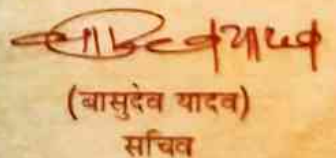 (बासुदेव यादव)
सचिव